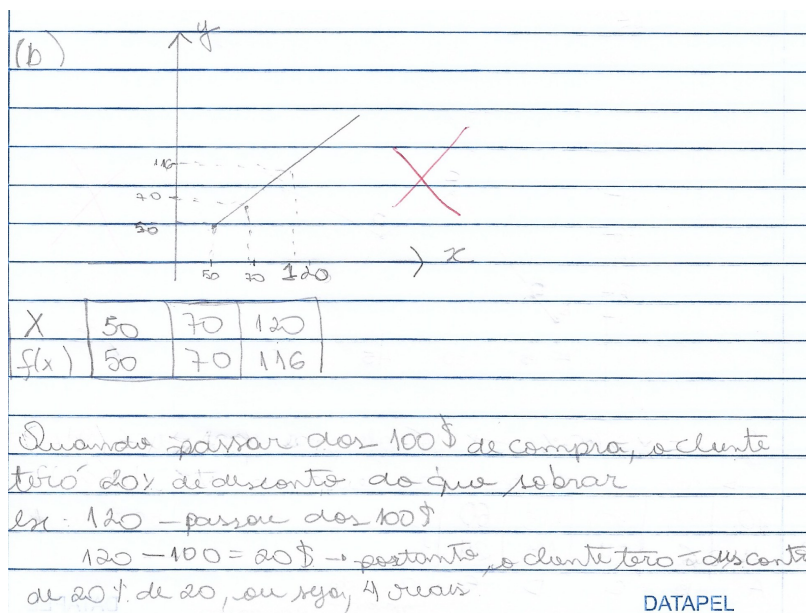 (b)
y
116
70
50
50 70 120 x
X 50 70 120
f(x) 50 70 116
Quando passar dos 100$ de compra, o cliente
terá 20% de desconto do que sobrar
ex: 120 – passou dos 100$
120 – 100 = 20$ → portanto, o cliente terá desconto
de 20% de 20, ou seja, 4 reais.
DATAPEL